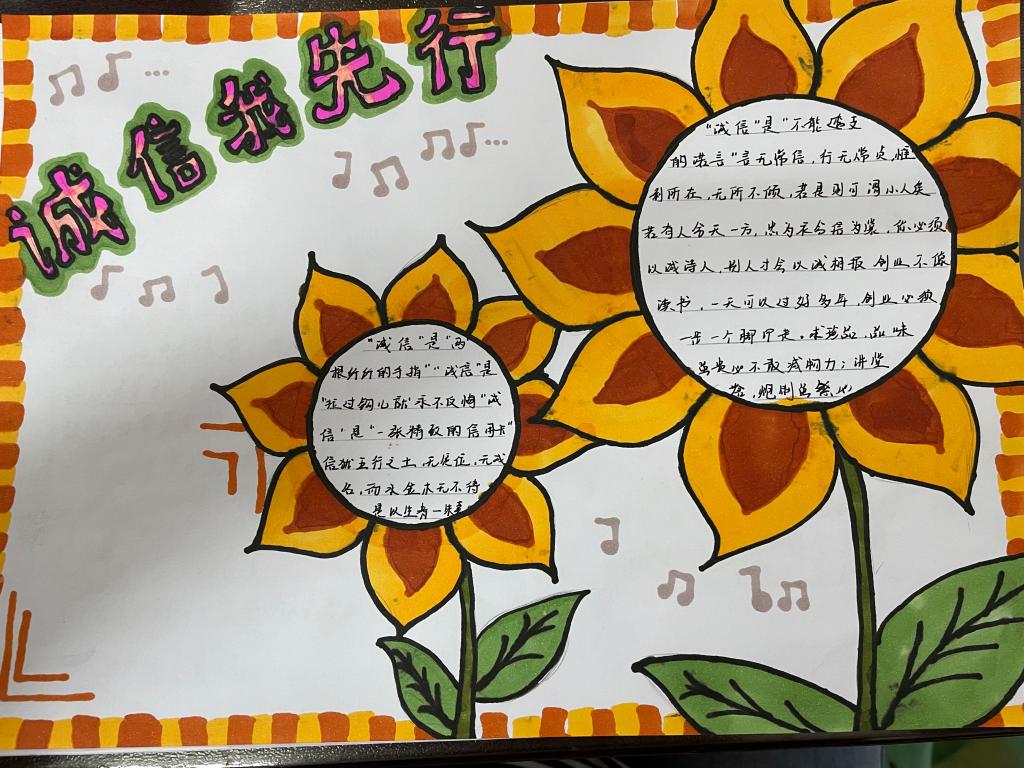 诚信我先行
"诚信"是"不能透支
的诺言"言无常信,行无常贞,惟
利所在,无所不倾,若是则可谓小人矣
若有人兮天一方,忠为衣兮信为裳,你必须
以诚待人,别人才会以诚相报 创业不像
读书,一天可以过好多年,创业必须
一步一个脚印走。求珍品,品味
虽贵必不敢减物力;讲堂
炮制虽繁必
"诚信"是"两
根纤纤的手指""诚信"是
"拉过钩儿就永不反悔"诚
信"是"一张精致的信用卡"
信犹五行之土,无定位,无成
名,而水金木无不待
是以生者